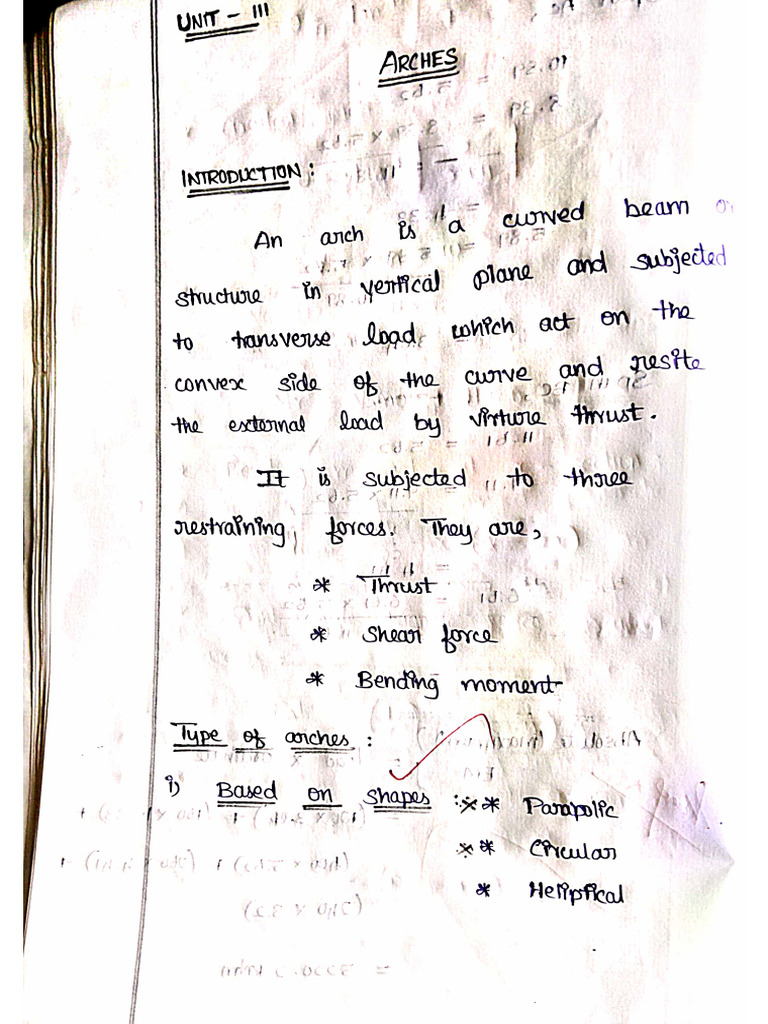 UNIT - III
ARCHES
INTRODUCTION:
An arch is a curved beam
structure in vertical plane and subjected
to transverse load which act on the
convex side of the curve and resite
the external load by virture thrust.
It is subjected to three
restraining forces. They are,
* Thrust
* Shear force
* Bending moment
Type of arches:
i) Based on shapes : * Parabolic
* Circular
* Heliptical